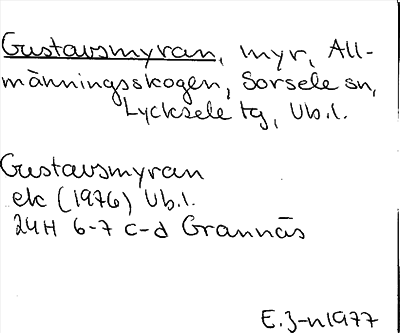 Gustavsmyran, myr, All-
männingsskogen, Sorsele sn,
Lycksele tg, Vb.l.
Gustavsmyran
ek (1976) Vb.l.
24H 6-7 c-d Grannäs
E.J-n 1977